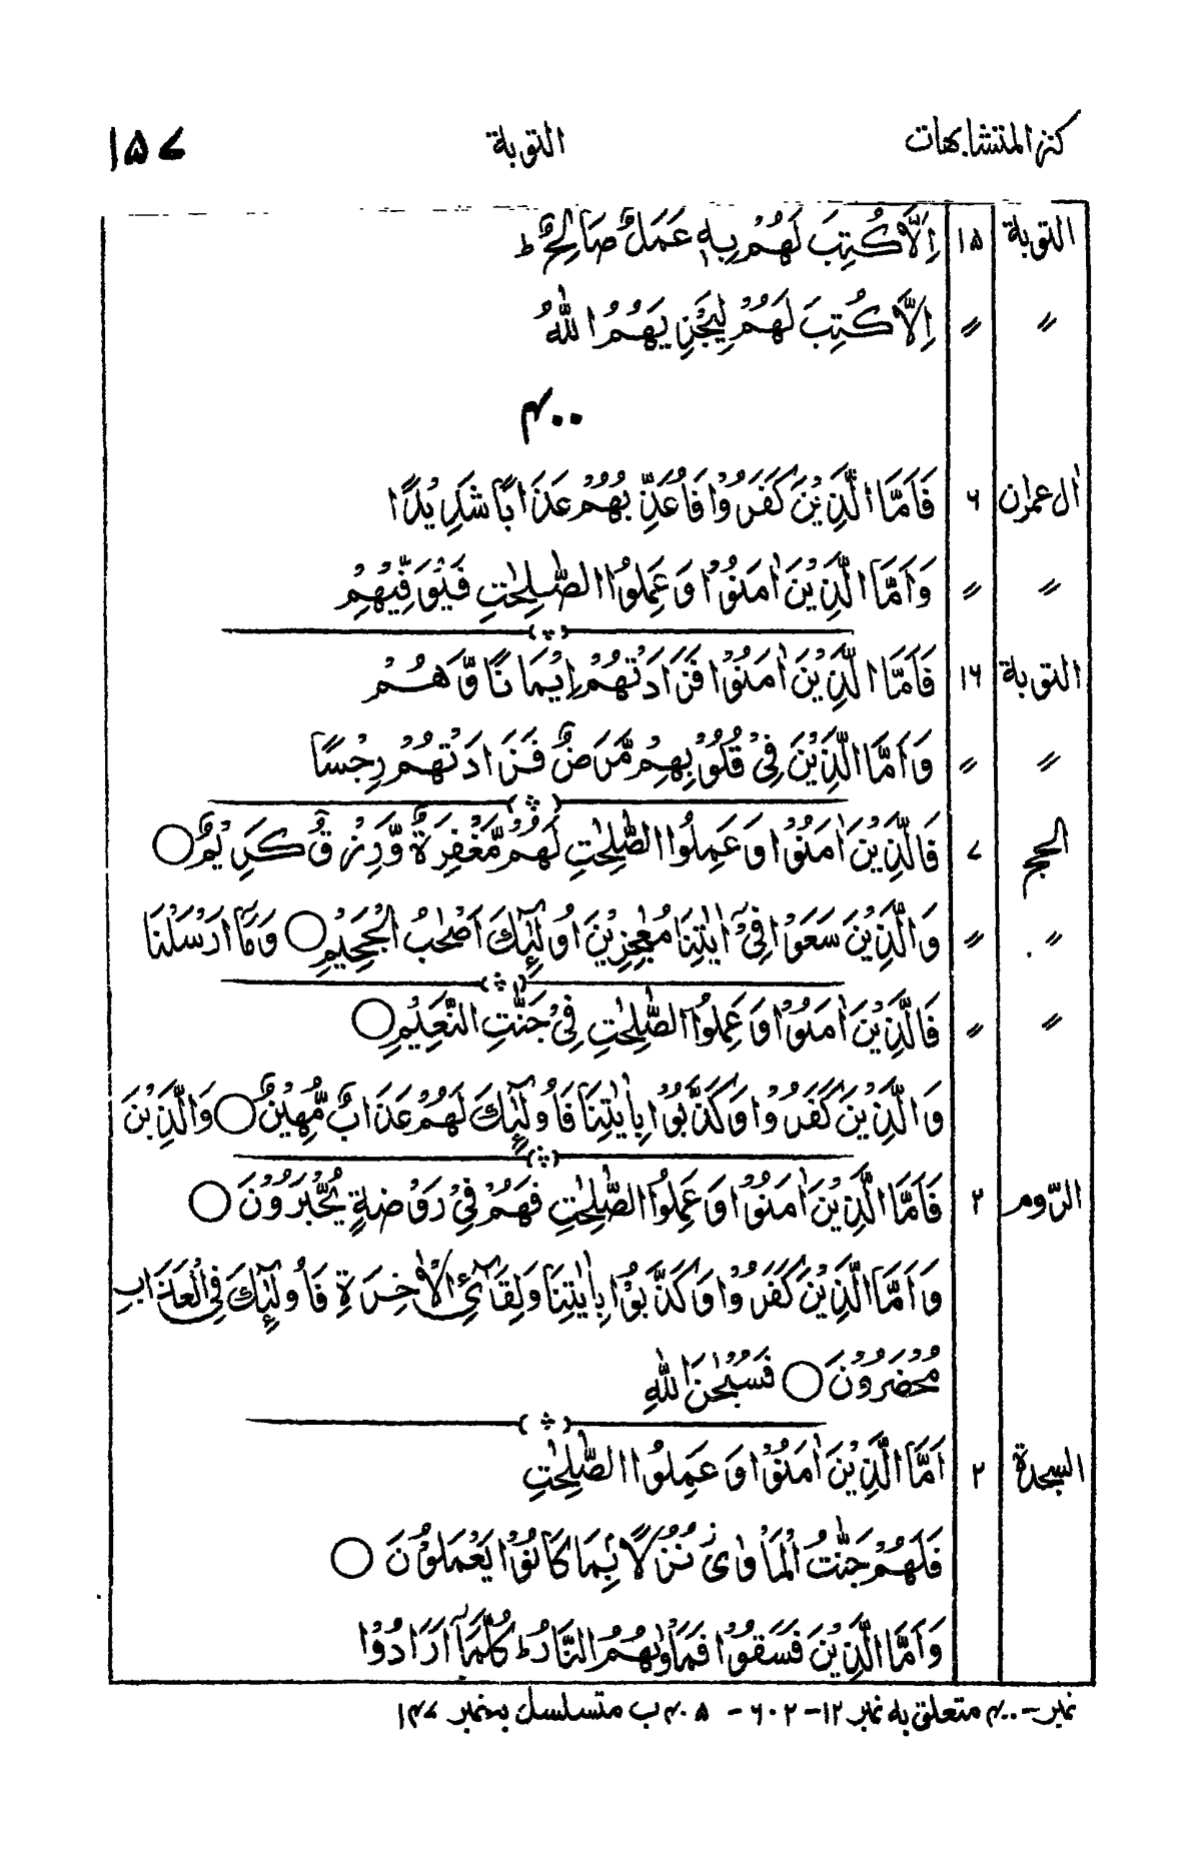 كنز المتشابهات التوبة ۱۵۷
التوبة ۱۵ اِلَّا كُتِبَ لَهُمْ بِهٖ عَمَلٌ صَالِحٌ ط
〃 〃 اِلَّا كُتِبَ لَهُمْ لِيَجْزِيَهُمُ اللّٰهُ
۴۰۰
اٰل عمرٰن ۶ فَاَمَّا الَّذِيْنَ كَفَرُوْا فَاُعَذِّبُهُمْ عَذَابًا شَدِيْدًا
〃 〃 وَاَمَّا الَّذِيْنَ اٰمَنُوْا وَعَمِلُوا الصّٰلِحٰتِ فَيُوَفِّيْهِمْ
التوبة ۱۶ فَاَمَّا الَّذِيْنَ اٰمَنُوْا فَزَادَتْهُمْ اِيْمَانًا وَّهُمْ
〃 〃 وَاَمَّا الَّذِيْنَ فِيْ قُلُوْبِهِمْ مَّرَضٌ فَزَادَتْهُمْ رِجْسًا
الحج ۷ فَالَّذِيْنَ اٰمَنُوْا وَعَمِلُوا الصّٰلِحٰتِ لَهُمْ مَّغْفِرَةٌ وَّرِزْقٌ كَرِيْمٌ ○
〃 〃 وَالَّذِيْنَ سَعَوْا فِيْٓ اٰيٰتِنَا مُعٰجِزِيْنَ اُولٰٓئِكَ اَصْحٰبُ الْجَحِيْمِ ○ وَمَآ اَرْسَلْنَا
〃 〃 فَالَّذِيْنَ اٰمَنُوْا وَعَمِلُوا الصّٰلِحٰتِ فِيْ جَنّٰتِ النَّعِيْمِ ○
وَالَّذِيْنَ كَفَرُوْا وَكَذَّبُوْا بِاٰيٰتِنَا فَاُولٰٓئِكَ لَهُمْ عَذَابٌ مُّهِيْنٌ ○ وَالَّذِيْنَ
الرّوم ۲ فَاَمَّا الَّذِيْنَ اٰمَنُوْا وَعَمِلُوا الصّٰلِحٰتِ فَهُمْ فِيْ رَوْضَةٍ يُّحْبَرُوْنَ ○
وَاَمَّا الَّذِيْنَ كَفَرُوْا وَكَذَّبُوْا بِاٰيٰتِنَا وَلِقَآئِ الْاٰخِرَةِ فَاُولٰٓئِكَ فِي الْعَذَابِ
مُحْضَرُوْنَ ○ فَسُبْحٰنَ اللّٰهِ
السجدة ۲ اَمَّا الَّذِيْنَ اٰمَنُوْا وَعَمِلُوا الصّٰلِحٰتِ
فَلَهُمْ جَنّٰتُ الْمَاْوٰى نُزُلًا بِمَا كَانُوْا يَعْمَلُوْنَ ○
وَاَمَّا الَّذِيْنَ فَسَقُوْا فَمَاْوٰىهُمُ النَّارُ ط كُلَّمَآ اَرَادُوْا
نمبر - ۴۰۰ متعلق به نمبر ۱۲ - ۶۰۲ - ۴۰۵ ب متسلسل به نمبر ۱۴۷